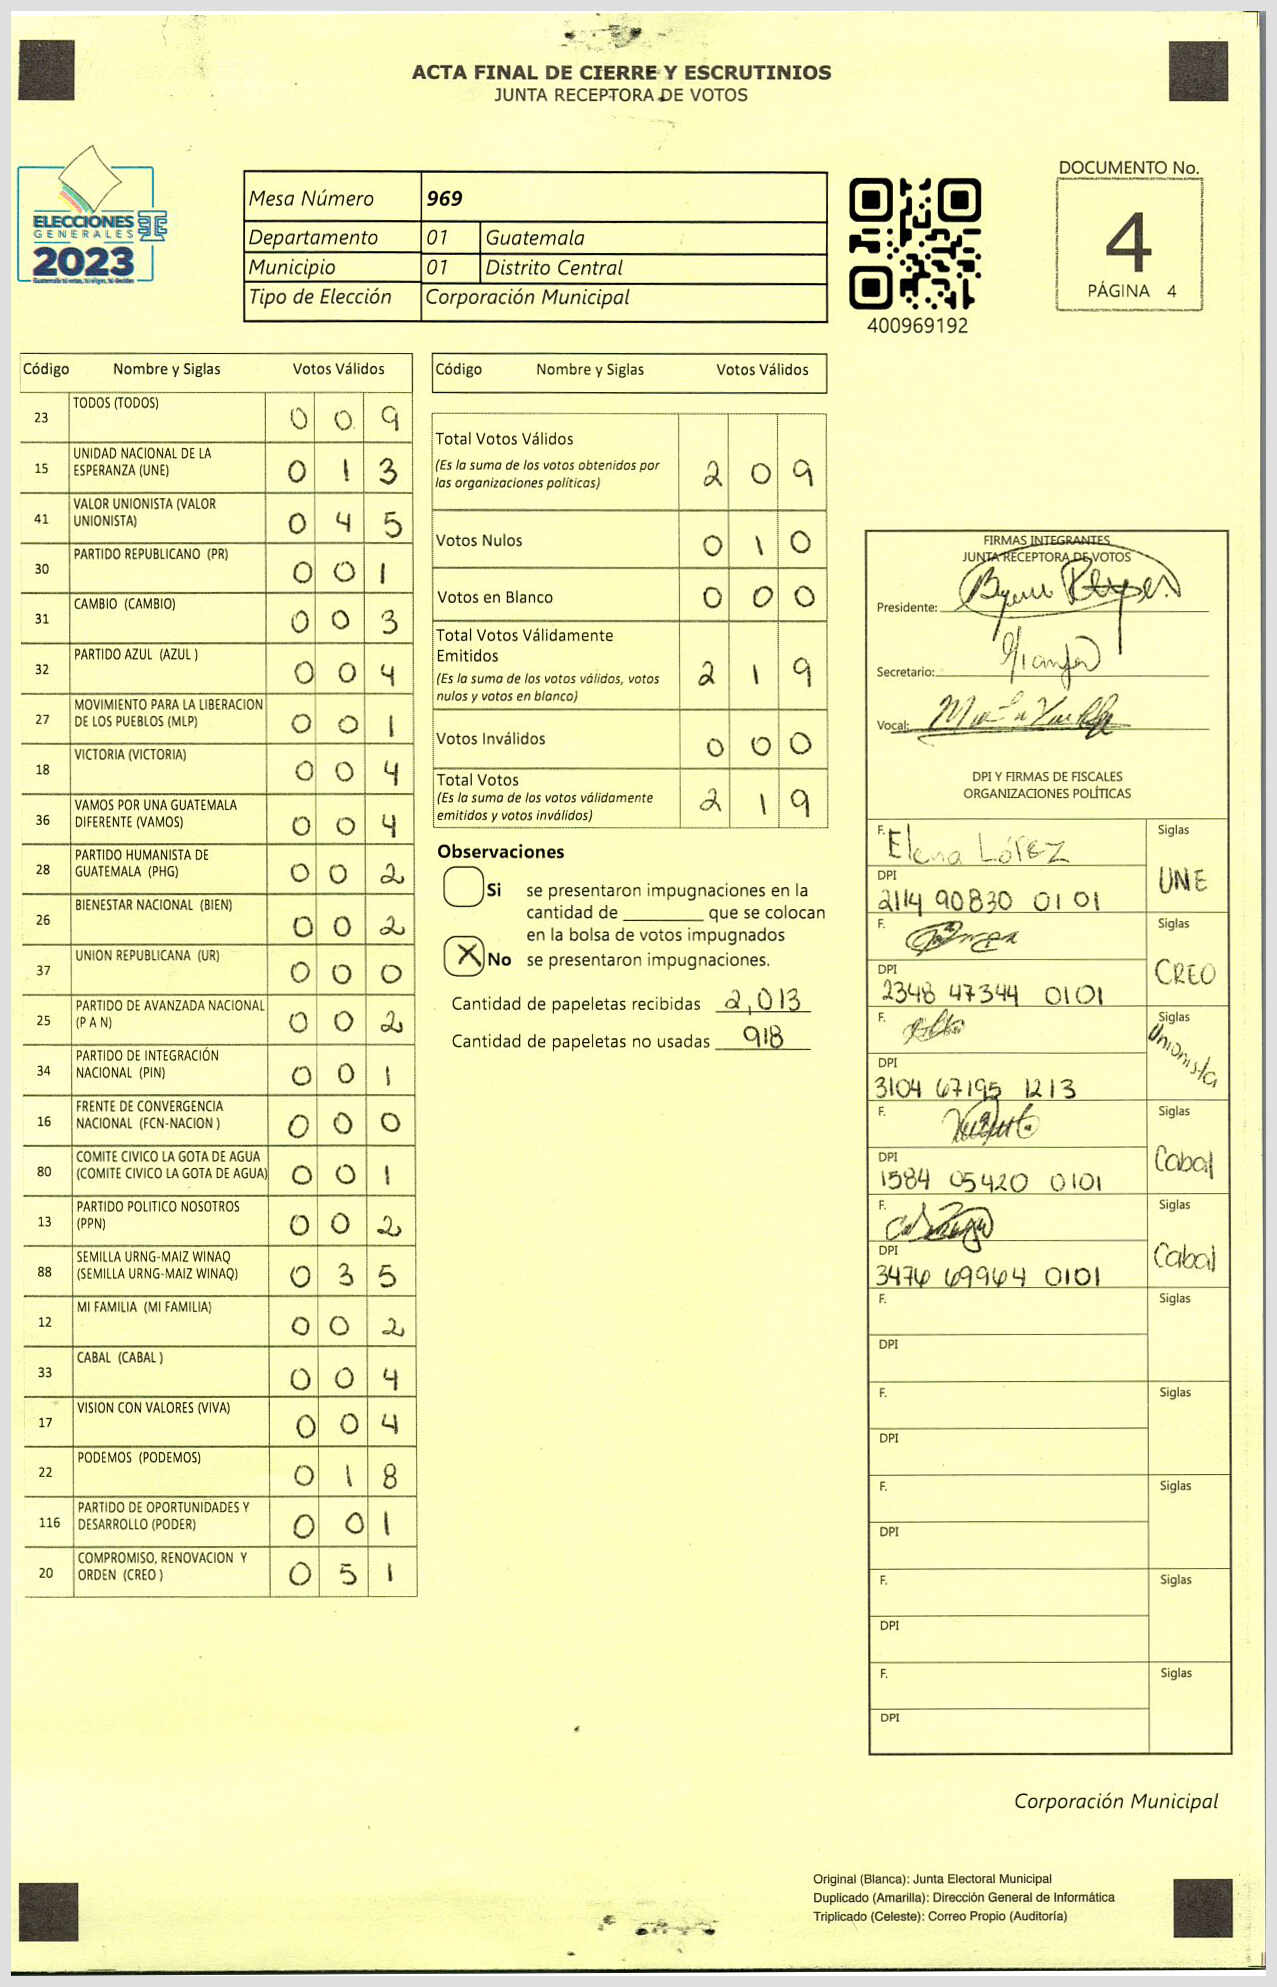 ACTA FINAL DE CIERRE Y ESCRUTINIOS
JUNTA RECEPTORA DE VOTOS
ELECCIONES
GENERALES
2023
Mesa Número 969
Departamento 01 Guatemala
Municipio 01 Distrito Central
Tipo de Elección Corporación Municipal
400969192
DOCUMENTO No.
4
PÁGINA 4
Código Nombre y Siglas Votos Válidos
23 TODOS (TODOS) 0 0 9
15 UNIDAD NACIONAL DE LA
ESPERANZA (UNE) 0 1 3
41 VALOR UNIONISTA (VALOR
UNIONISTA) 0 4 5
30 PARTIDO REPUBLICANO (PR) 0 0 1
31 CAMBIO (CAMBIO) 0 0 3
32 PARTIDO AZUL (AZUL ) 0 0 4
27 MOVIMIENTO PARA LA LIBERACION
DE LOS PUEBLOS (MLP) 0 0 1
18 VICTORIA (VICTORIA) 0 0 4
36 VAMOS POR UNA GUATEMALA
DIFERENTE (VAMOS) 0 0 4
28 PARTIDO HUMANISTA DE
GUATEMALA (PHG) 0 0 2
26 BIENESTAR NACIONAL (BIEN) 0 0 2
37 UNION REPUBLICANA (UR) 0 0 0
25 PARTIDO DE AVANZADA NACIONAL
(P A N) 0 0 2
34 PARTIDO DE INTEGRACIÓN
NACIONAL (PIN) 0 0 1
16 FRENTE DE CONVERGENCIA
NACIONAL (FCN-NACION ) 0 0 0
80 COMITE CIVICO LA GOTA DE AGUA
(COMITE CIVICO LA GOTA DE AGUA) 0 0 1
13 PARTIDO POLITICO NOSOTROS
(PPN) 0 0 2
88 SEMILLA URNG-MAIZ WINAQ
(SEMILLA URNG-MAIZ WINAQ) 0 3 5
12 MI FAMILIA (MI FAMILIA) 0 0 2
33 CABAL (CABAL ) 0 0 4
17 VISION CON VALORES (VIVA) 0 0 4
22 PODEMOS (PODEMOS) 0 1 8
116 PARTIDO DE OPORTUNIDADES Y
DESARROLLO (PODER) 0 0 1
20 COMPROMISO, RENOVACION Y
ORDEN (CREO ) 0 5 1
Código Nombre y Siglas Votos Válidos
Total Votos Válidos
(Es la suma de los votos obtenidos por
las organizaciones políticas) 2 0 9
Votos Nulos 0 1 0
Votos en Blanco 0 0 0
Total Votos Válidamente
Emitidos
(Es la suma de los votos válidos, votos
nulos y votos en blanco) 2 1 9
Votos Inválidos 0 0 0
Total Votos
(Es la suma de los votos válidamente
emitidos y votos inválidos) 2 1 9
Observaciones
Si se presentaron impugnaciones en la
cantidad de ________ que se colocan
en la bolsa de votos impugnados
X No se presentaron impugnaciones.
Cantidad de papeletas recibidas 2,013
Cantidad de papeletas no usadas 918
FIRMAS INTEGRANTES
JUNTA RECEPTORA DE VOTOS
Presidente:
Secretario:
Vocal:
DPI Y FIRMAS DE FISCALES
ORGANIZACIONES POLÍTICAS
F. Elena López Siglas
DPI UNE
2114 90830 01 01
F. Siglas
DPI CREO
2348 47344 0101
F. Siglas
DPI Unionista
3104 67195 1213
F. Siglas
DPI Cabal
1584 05420 0101
F. Siglas
DPI Cabal
3476 69964 0101
F. Siglas
DPI
F. Siglas
DPI
F. Siglas
DPI
F. Siglas
DPI
F. Siglas
DPI
Corporación Municipal
Original (Blanca): Junta Electoral Municipal
Duplicado (Amarilla): Dirección General de Informática
Triplicado (Celeste): Correo Propio (Auditoría)